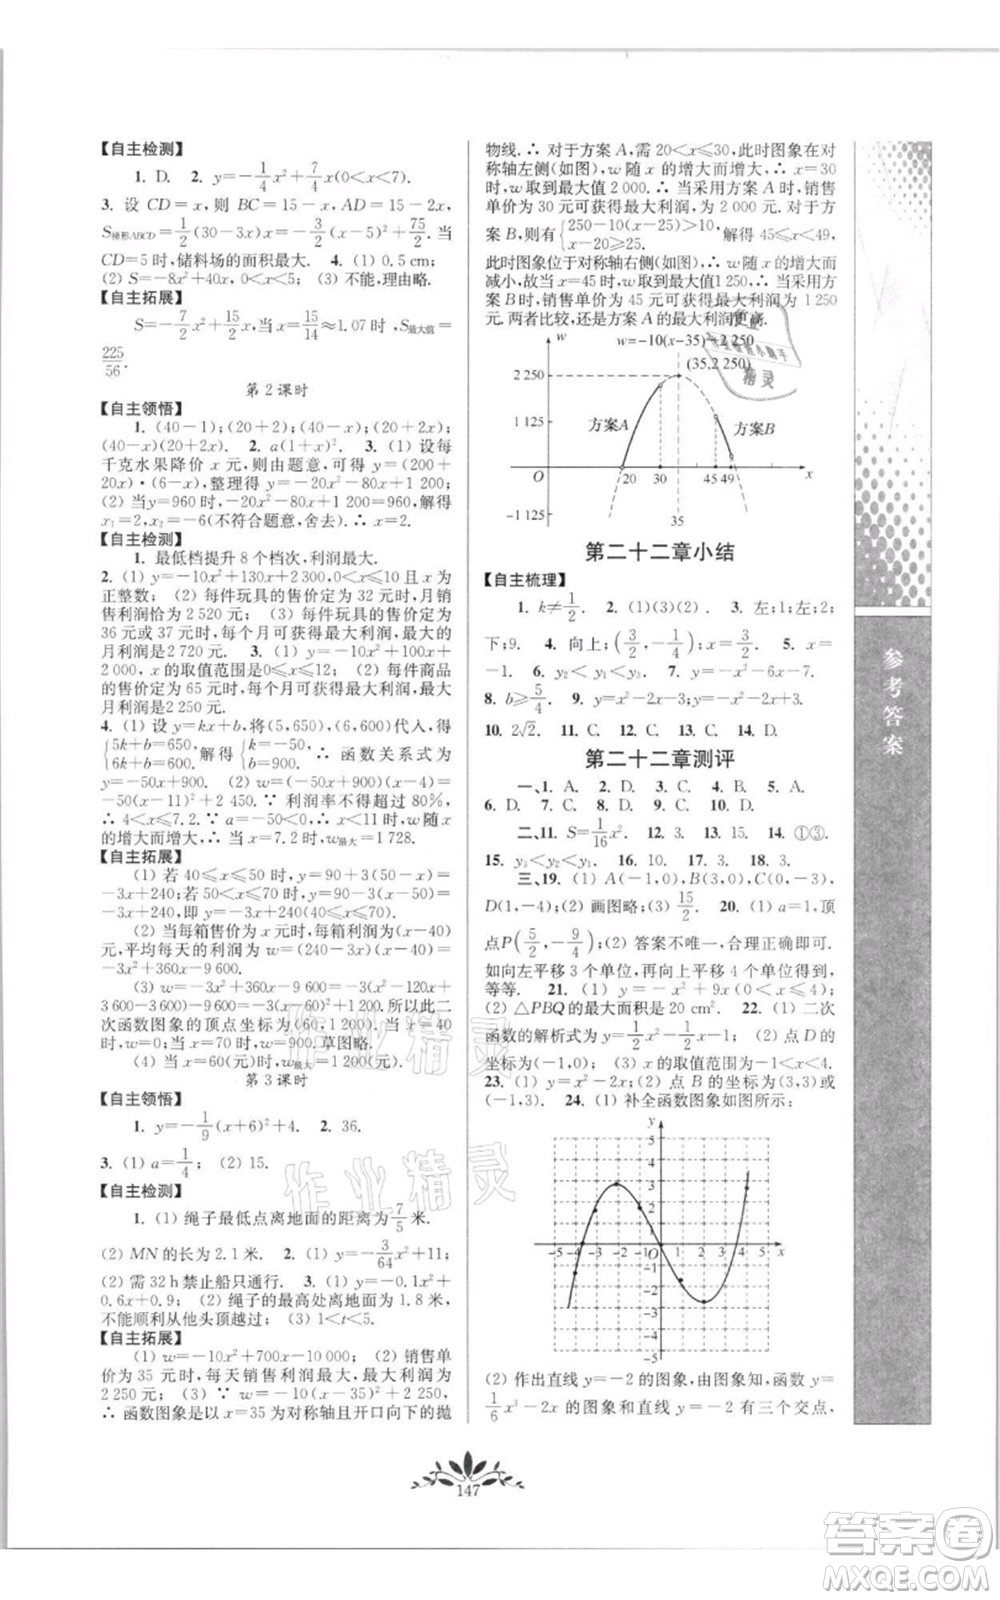 【自主检测】
1. D. 2. y=-1/4x²+7/4x(0<x<7).
3. 设 CD=x,则 BC=15-x,AD=15-2x,
S梯形ABCD=1/2(30-3x)x=-3/2x²+75/2. 当
CD=5时,储料场的面积最大. 4. (1) 0.5 cm;
(2) S=-8x²+4x,0<x<1/2; (3) 不能,理由略.
【自主拓展】
S=-7/2x²+15/2x,当 x=15/14≈1.07 时,S最大值=
225/56.
第 2 课时
【自主领悟】
1. (40-1);(20+2);(40-x);(20+2x);
(40-x)(20+2x). 2. a(1+x)². 3. (1) 设每
千克水果降价 x 元,则由题意,可得 y=(200+
20x)·(6-x),整理得 y=-20x²-80x+1 200;
(2) 当y=960时,-20x²-80x+1 200=960,解得
x₁=2,x₂=-6(不符合题意,舍去). ∴ x=2.
【自主检测】
1. 最低档提升 8 个档次,利润最大.
2. (1) y=-10x²+130x+2 300,0<x≤10且 x 为
正整数; (2) 每件玩具的售价定为 32 元时,月销
售利润恰为 2 520 元; (3) 每件玩具的售价定为
36 元或 37 元时,每个月可获得最大利润,最大的
月利润是2 720元. 3. (1) y=-10x²+100x+
2 000,x 的取值范围是0≤x≤12; (2) 每件商品
的售价定为65元时,每个月可获得最大利润,最大
月利润是2 250元.
4. (1) 设 y=kx+b,将(5,650),(6,600)代入,得
{5k+b=650, 6k+b=600,解得{k=-50, b=900. ∴ 函数关系式为
y=-50x+900; (2) w=(x-4)(-50x+900)=
-50(x-11)²+2 450. ∵ 利润率不得超过80%,
∴ 4<x≤7.2. ∵ a=-50<0,∴ x<11时,w随x
的增大而增大,∴ 当 x=7.2 时,w最大=1 728.
【自主拓展】
(1) 若 40≤x≤50 时,y=90+3(50-x)=
-3x+240,若 50<x≤70 时,y=90-3(x-50)=
-3x+240,即 y=-3x+240.
(2) 当每箱售价为 x 元时,每箱利润为(x-40)
元,平均每天的利润为 w=(240-3x)(x-40)=
-3x²+360x-9 600.
(3) w=-3x²+360x-9 600=-3(x²-120x+
3 600-3 600)-9 600=-3(x-60)²+1 200,所以此二
次函数图象的顶点坐标为(60,1 200),当 x=40
时,w=0;当 x=70时,w=900. 草图略.
(4) 当 x=60(元)时,w最大=1 200(元).
第 3 课时
【自主领悟】
1. y=-1/9(x+6)²+4. 2. 36.
3. (1) a=1/4; (2) 15.
【自主检测】
1. (1) 绳子最低点离地面的距离为7/5米.
(2) MN的长为 2.1 米. 2. (1) y=-3/64x²+11;
(2) 需 32 h 禁止船只通行. 3. (1) y=-0.1x²+
0.6x+0.9; (2) 绳子的最高处离地面 1.8 米,
不能顺利从他头顶越过; (3) 1<t<5.
【自主拓展】
(1) w=-10x²+700x-10 000; (2) 销售单
价为 35 元时,每天销售利润最大,最大利润为
2 250 元; (3) ∵ w=-10(x-35)²+2 250,
∴ 函数图象是以x=35为对称轴且开口向下的抛
物线. ∴ 对于方案 A,需 20<x≤30,此时图象在对
称轴左侧(如图),w 随 x 的增大而增大,∴ x=30
时,w 取到最大值 2 000. ∴ 当采用方案 A 时,销售
单价为 30 元可获得最大利润,为 2 000 元. 对于方
案 B,则有{250-10(x-25)>10, x-20≥25. 解得 45≤x<49.
此时图象位于对称轴右侧(如图),∴ w随x的增大而
减小,故当 x=45 时,w 取到最大值1 250,∴ 当采用
方案 B 时,销售单价为 45 元可获得最大利润为 1 250
元. 两者比较,还是方案 A 的最大利润更高.
w w=-10(x-35)²+2 250
(35,2 250)
2 250
1 125
方案A 方案B
O 20 30 45 49 x
-1 125
35
第二十二章小结
【自主梳理】
1. k≠1/2. 2. (1)(3)(2). 3. 左;1;左;2;
下;9. 4. 向上;(3/2,-1/4);x=3/2. 5. x=
-1. 6. y₂<y₁<y₃. 7. y=-x²-6x-7.
8. b≥5/4. 9. y=x²-2x-3;y=-x²-2x+3.
10. 2√2. 11. C. 12. C. 13. C. 14. C.
第二十二章测评
一、1. A. 2. B. 3. B. 4. D. 5. A.
6. D. 7. C. 8. C. 9. C. 10. D.
二、11. S=1/16x². 12. 3. 13. 15. 14. ①③.
15. y₃<y₂<y₁. 16. 10. 17. 2. 18. 3.
三、19. (1) A(-1,0),B(3,0),C(0,-3),
D(1,-4); (2) 画图略; (3) 15/2. 20. (1) a=1,顶
点P(5/2,-9/4);(2) 答案不唯一,合理正确即可.
如向左平移 3 个单位,再向上平移 4 个单位得到,
等等. 21. (1) y=-x²+9x(0<x≤4);
(2) △PBQ的最大面积是20 cm². 22. (1) 二次
函数的解析式为 y=1/2x²-1/2x-1; (2) 点 D 的
坐标为(-1,0); (3) x 的取值范围是-1<x<4.
23. (1) y=x²-2x; (2) 点 B 的坐标为(3,3)或
(-1,3). 24. (1) 补全函数图象如图所示:
y
5
4
3
2
1
-5 -4 -3 -2 -1 O 1 2 3 4 5 x
-1
-2
-3
-4
-5
(2) 作出直线 y=-2 的图象,由图象知,函数 y=
1/6x³-2x 的图象和直线 y=-2 有三个交点,
参考答案
147
作业精灵
作业精灵
答案卷
MXQE.COM